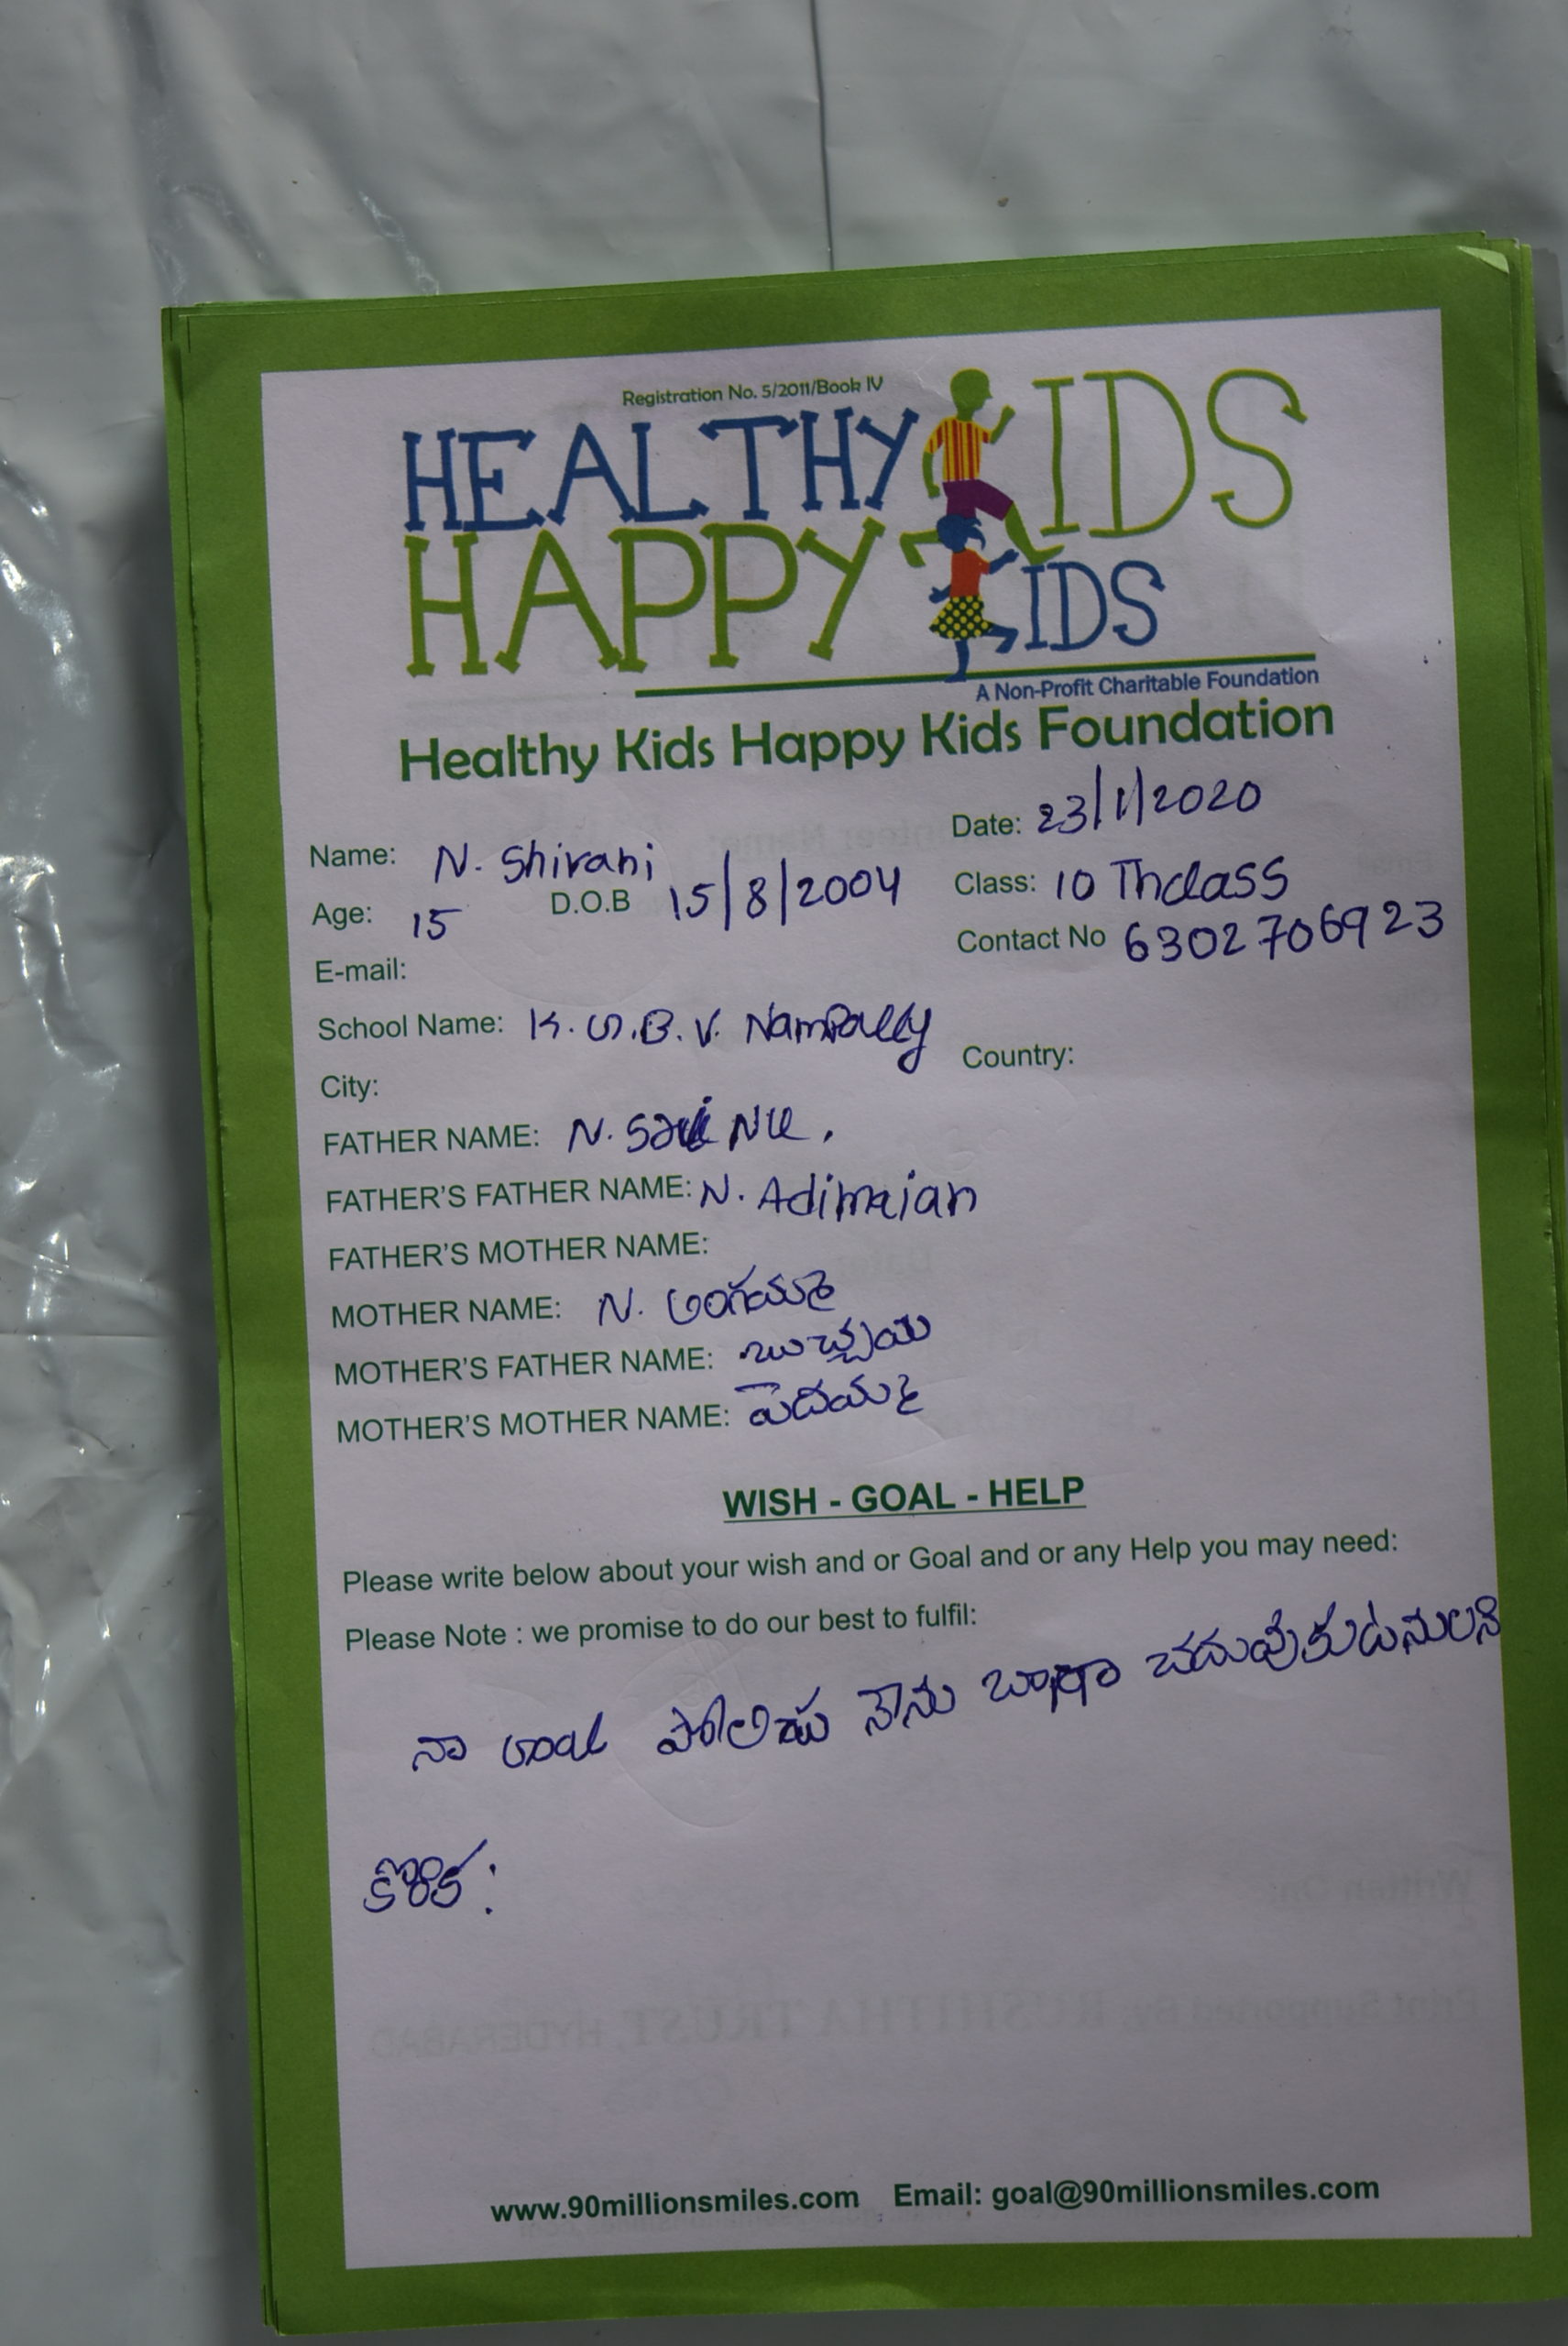 Registration No. 5/2011/Book IV
HEALTHY KIDS
HAPPY KIDS
A Non-Profit Charitable Foundation
Healthy Kids Happy Kids Foundation
Date: 23/1/2020
Name: N. Shivani
Class: 10 Thclass
Age: 15 D.O.B 15/8/2004
Contact No 6302706923
E-mail:
School Name: K.G.B.V. Nampally
Country:
City:
FATHER NAME: N.
FATHER'S FATHER NAME: N. Adimaian
FATHER'S MOTHER NAME:
MOTHER NAME: N. అంగమ్మ
MOTHER'S FATHER NAME: బుచ్చయ
MOTHER'S MOTHER NAME: పెదమ్మ
WISH - GOAL - HELP
Please write below about your wish and or Goal and or any Help you may need:
Please Note : we promise to do our best to fulfil:
నా Goal పోలిసు నేను బాగా చదువుకుటనులని
కోరిక:
www.90millionsmiles.com Email: goal@90millionsmiles.com